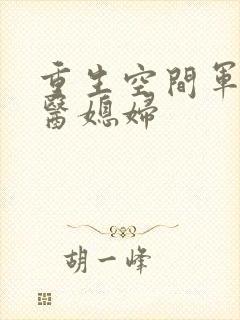 重生空間軍
醫媳婦
胡一峰